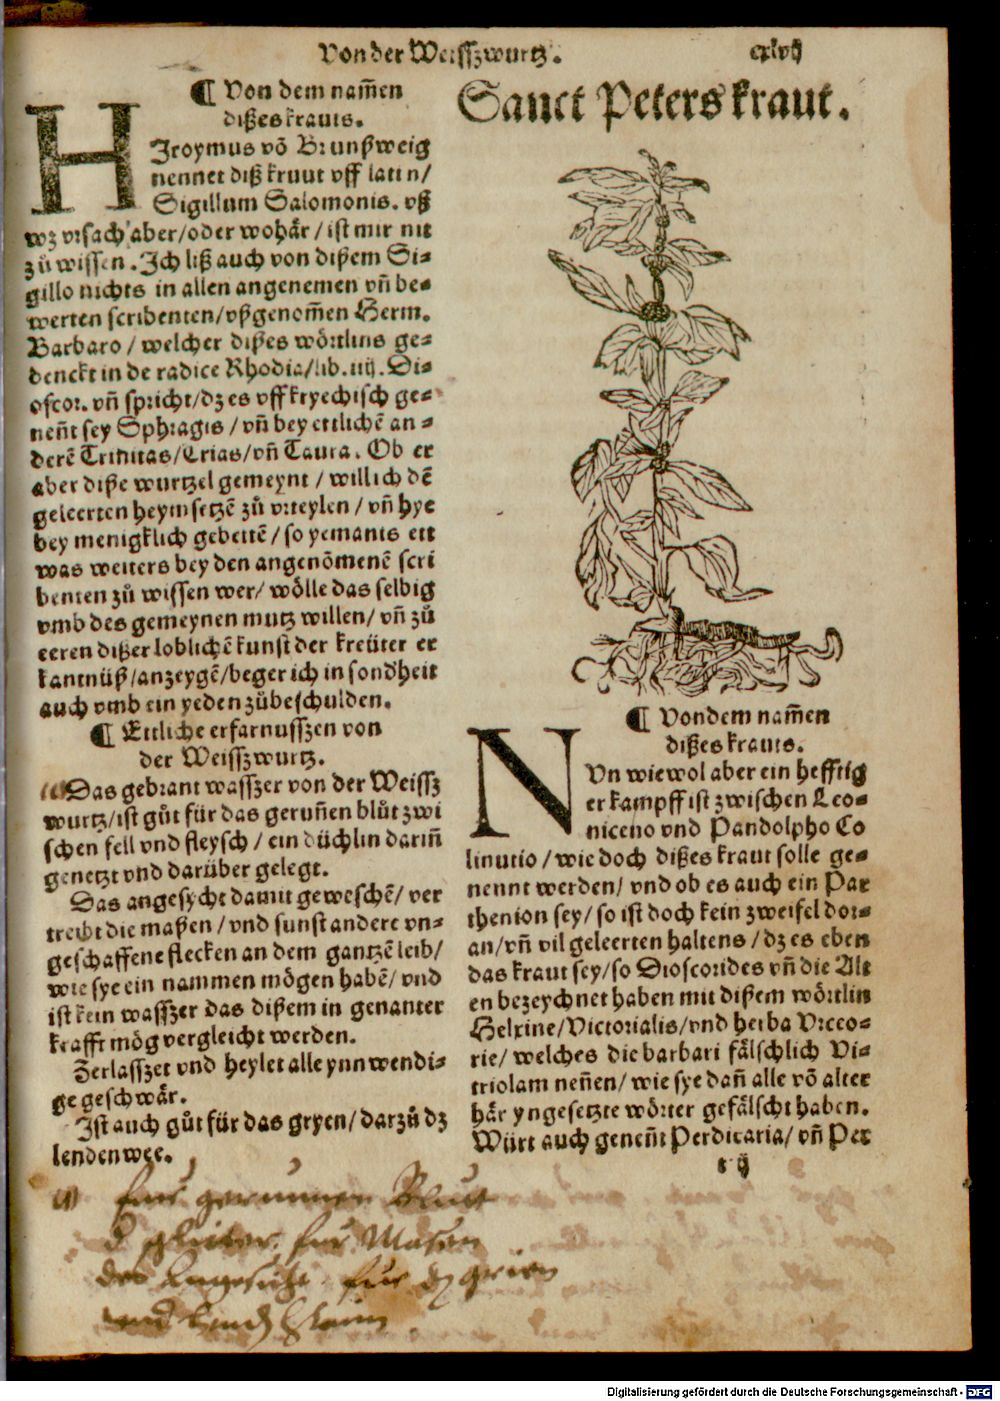 Von der Weissz wurtz.
cxlvij
¶ Von dem nam̄en
dißes krauts.
HIroymus võ Brunßweig
nennet diß kruut vff latin/
Sigillum Salomonis. vß
wz vrsach aber/oder wohär/ist mir nit
zů wissen. Ich liß auch von dißem Si⸗
gillo nichts in allen angenemen vñ be⸗
werten scribenten/vßgenom̄en Herm.
Barbaro/welcher dißes wörtlins ge⸗
denckt in de radice Rhodia/lib. iiij. Di⸗
oscor. vñ spricht/dz es vff kryechisch ge⸗
neñt sey Sphragis/vñ bey ettlichẽ an⸗
derẽ Trinitas/Crias/vñ Taura. Ob er
aber diße wurtzel gemeynt/will ich dẽ
geleerten heym setzẽ zů vrteylen/vñ hye
bey menigklich gebettẽ/so yemants ett
was weiters bey den angenõmenẽ scri
benten zů wissen wer/wölle das selbig
vmb des gemeynen nutz willen/vñ zů
eeren dißer loblichẽ kunst der kreüter er
kantnüß/anzeygẽ/beger ich in sondheit
auch vmb ein yeden zůbeschulden.
¶ Ettliche erfarnusszen von
der Weisszwurtz.
Das gebrant wasszer von der Weissz
wurtz/ist gůt für das geruñen blůt zwi
schen fell vnd fleysch/ein düchlin dariñ
genetzt vnd darüber gelegt.
Das angesycht damit geweschẽ/ver
treibt die maßen/vnd sunst andere vn⸗
geschaffene flecken an dem gantzẽ leib/
wie sye ein nammen mögen habẽ/vnd
ist kein wasszer das dißem in genanter
krafft mög vergleicht werden.
Zerlasszet vnd heylet alle ynnwendi⸗
ge geschwär.
Ist auch gůt für das gryen/darzů dz
lenden wee.
Sanct Peters kraut.
¶ Von dem nam̄en
dißes krauts.
NVn wiewol aber ein hefftig
er kampff ist zwischen Leo⸗
niceno vnd Pandolpho Co
linutio/wie doch dißes kraut solle ge⸗
nennt werden/vnd ob es auch ein Par
thenion sey/so ist doch kein zweifel dor⸗
an/vñ vil geleerten haltens/dz es eben
das kraut sey/so Dioscorides vñ die Alt
en bezeychnet haben mit dißem wörtlin
Helxine/Victorialis/vnd herba Vrceo⸗
rie/welches die barbari fälschlich Vi⸗
triolam neñen/wie sye dañ alle võ alter
här yngesetzte wörter gefälscht haben.
Würt auch geneñt Perdicaria/vñ Per
r ij
fur gerunnen Blutt
fur Masen
des Angesicht fur dz grien
vnd
Digitalisierung gefördert durch die Deutsche Forschungsgemeinschaft - DFG